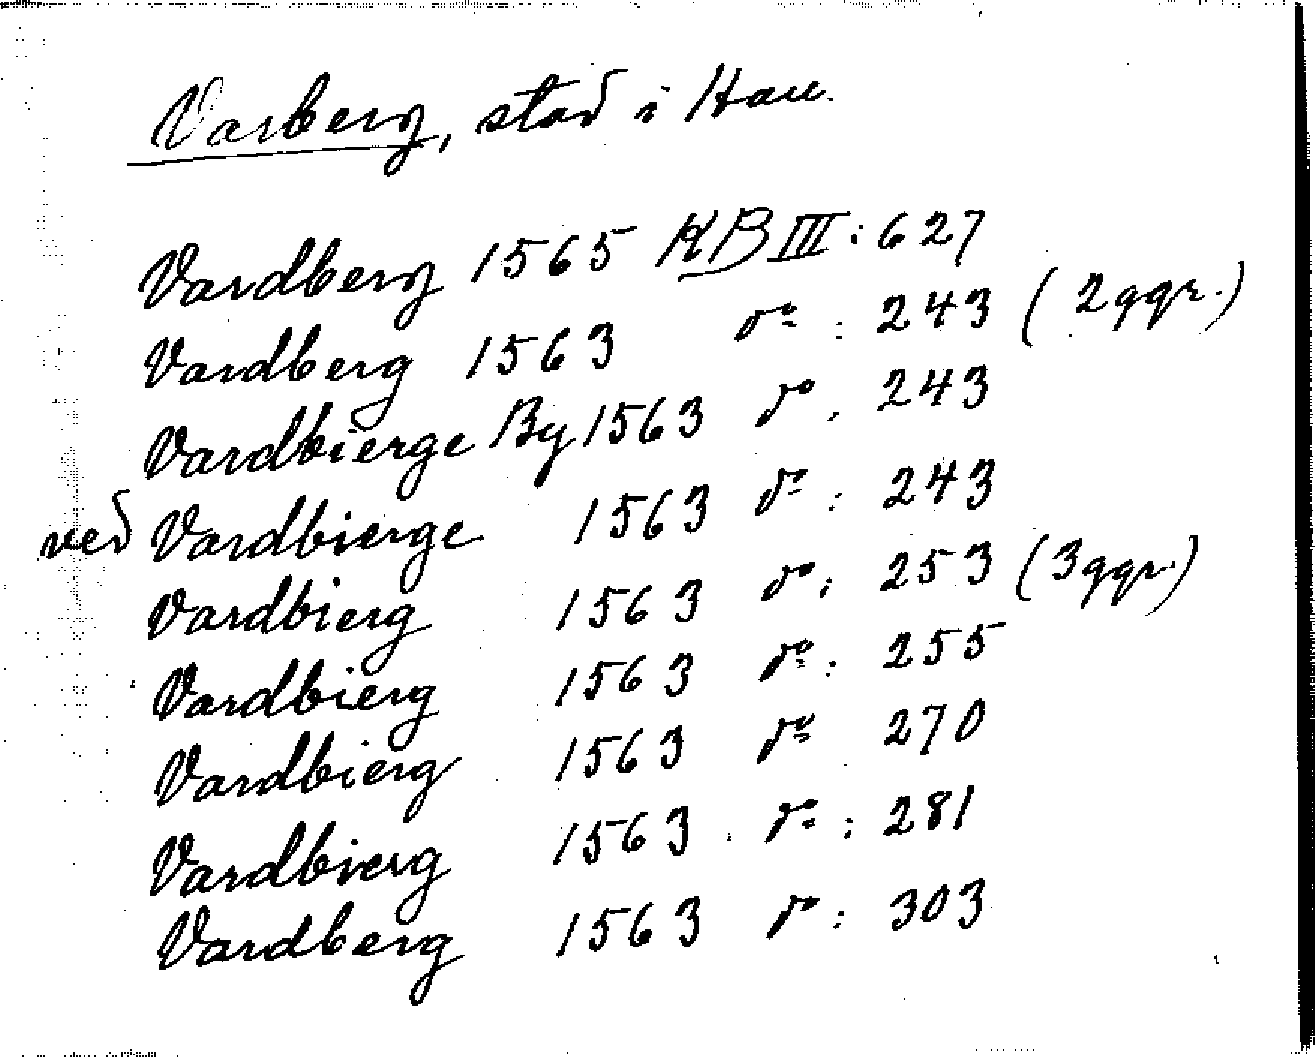 Varberg, stad i Hall.
Vardberg 1565 KB III: 627
Vardberg 1563 do : 243 (2 ggr.)
Vardbierge By 1563 do . 243
ved Vardbierge 1563 do : 243
Vardbierg 1563 do : 253 (3 ggr.)
Vardbierg 1563 do : 255
Vardbierg 1563 do 270
Vardbierg 1563 . do : 281
Vardberg 1563 do : 303